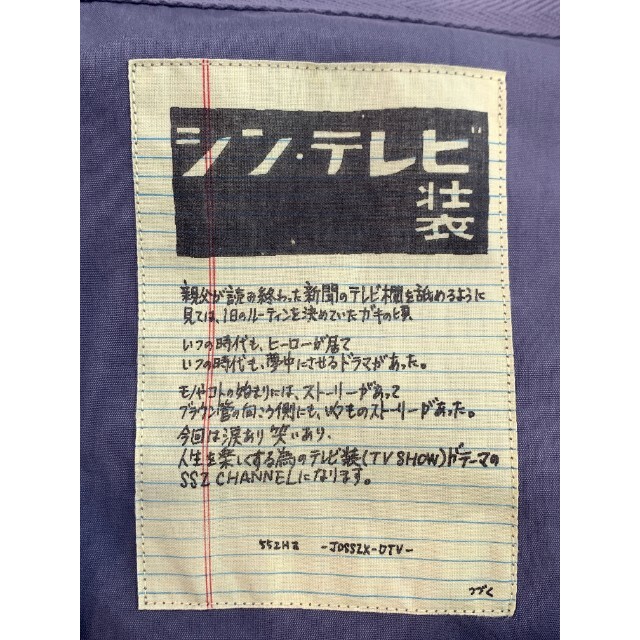 シン・テレビ
装
親父が読み終わった新聞のテレビ欄を舐めるように
見ては、1日のルーティンを決めていたガキの頃
いつの時代も、ヒーローが居て
いつの時代も、夢中にさせるドラマがあった。
モノやコトの始まりには、ストーリーがあって
ブラウン管の向こう側にも、いくものストーリーがあった。
今回は涙あり笑いあり、
人生を楽しくする為のテレビ装(TV SHOW)がテーマの
SSZ CHANNELになります。
552HZ -JOSSZX-DTV-
つづく